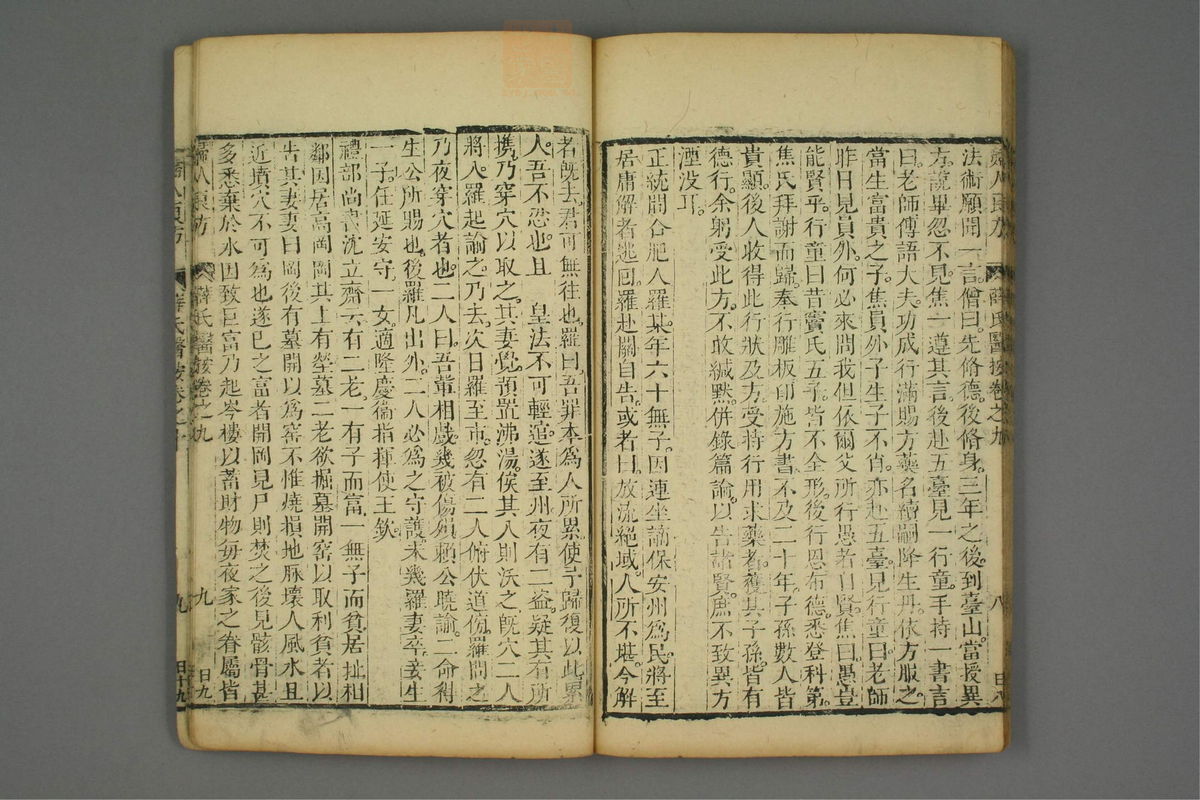 婦人良方
薛氏醫按卷之九
八
日八
法術願聞一言僧曰先脩德後脩身三年之後到臺山當授異
方說畢忽不見焦一遵其言後赴五臺見一行童手持一書言
曰老師傳語大夫功成行滿賜方藥名續嗣降生丹依方服之
當生富貴之子焦員外子生子不肖亦赴五臺見行童曰老師
昨日見員外何必來問我但依爾父所行愚者自賢焦曰愚豈
能賢乎行童曰昔竇氏五子皆不全形後行恩布德悉登科第
焦氏拜謝而歸奉行雕板印施方書不及二十年子孫數人皆
貴顯後人收得此行狀及方受持行用求藥者獲其子孫皆有
德行余躬受此方不敢緘默併錄篇論以告諸賢庶不致異方
湮没耳
正統間合肥人羅某年六十無子因連坐謫保安州爲民將至
居庸解者逃回羅赴關自告或者曰放流絕域人所不堪今解
者既去君可無往也羅曰吾罪本爲人所累使予歸復以此累
人吾不忍也且 皇法不可輕逭遂至州夜有二盗疑其有所
携乃穿穴以取之其妻覺預置沸湯俟其入則沃之旣穴二人
將入羅起諭之乃去次日羅至市忽有二人俯伏道傍羅問之
乃夜穿穴者也二人曰吾輩相戲幾被傷殞賴公曉諭二命得
生公所賜也後羅凡出外二人必爲之守護未幾羅妻卒妾生
一子任延安守一女適隆慶衞指揮使王欽
禮部尚書沈立齋云有二老一有子而富一無子而貧居址相
鄰因居高岡岡其上有塋墓二老欲掘墓開窑以取利貧者以
告其妻妻曰岡後有墓開以爲窑不惟燒損地脉壞人風水且
近墳穴不可爲也遂已之富者開岡見尸則焚之後見骸骨甚
多悉棄於水因致巨富乃起岑樓以蓄財物毎夜家之眷屬皆
婦人良方
薛氏醫按卷之九
九
日九